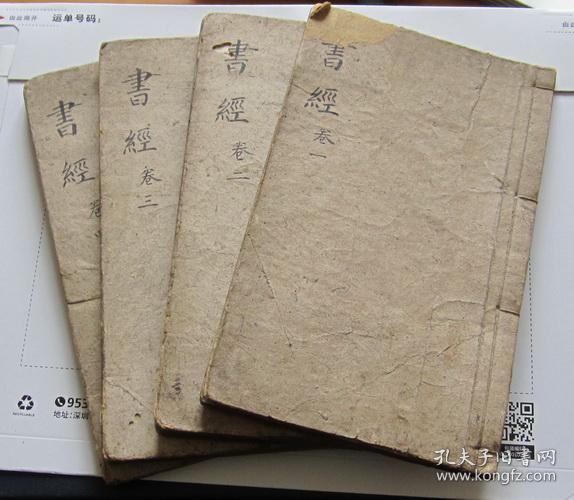 由此揭开 运单号码:
書經 卷一
書經 卷二
書經 卷三
書經 卷
RECYCLABLE
953
地址:深圳
孔夫子旧书网
www.kongfz.com